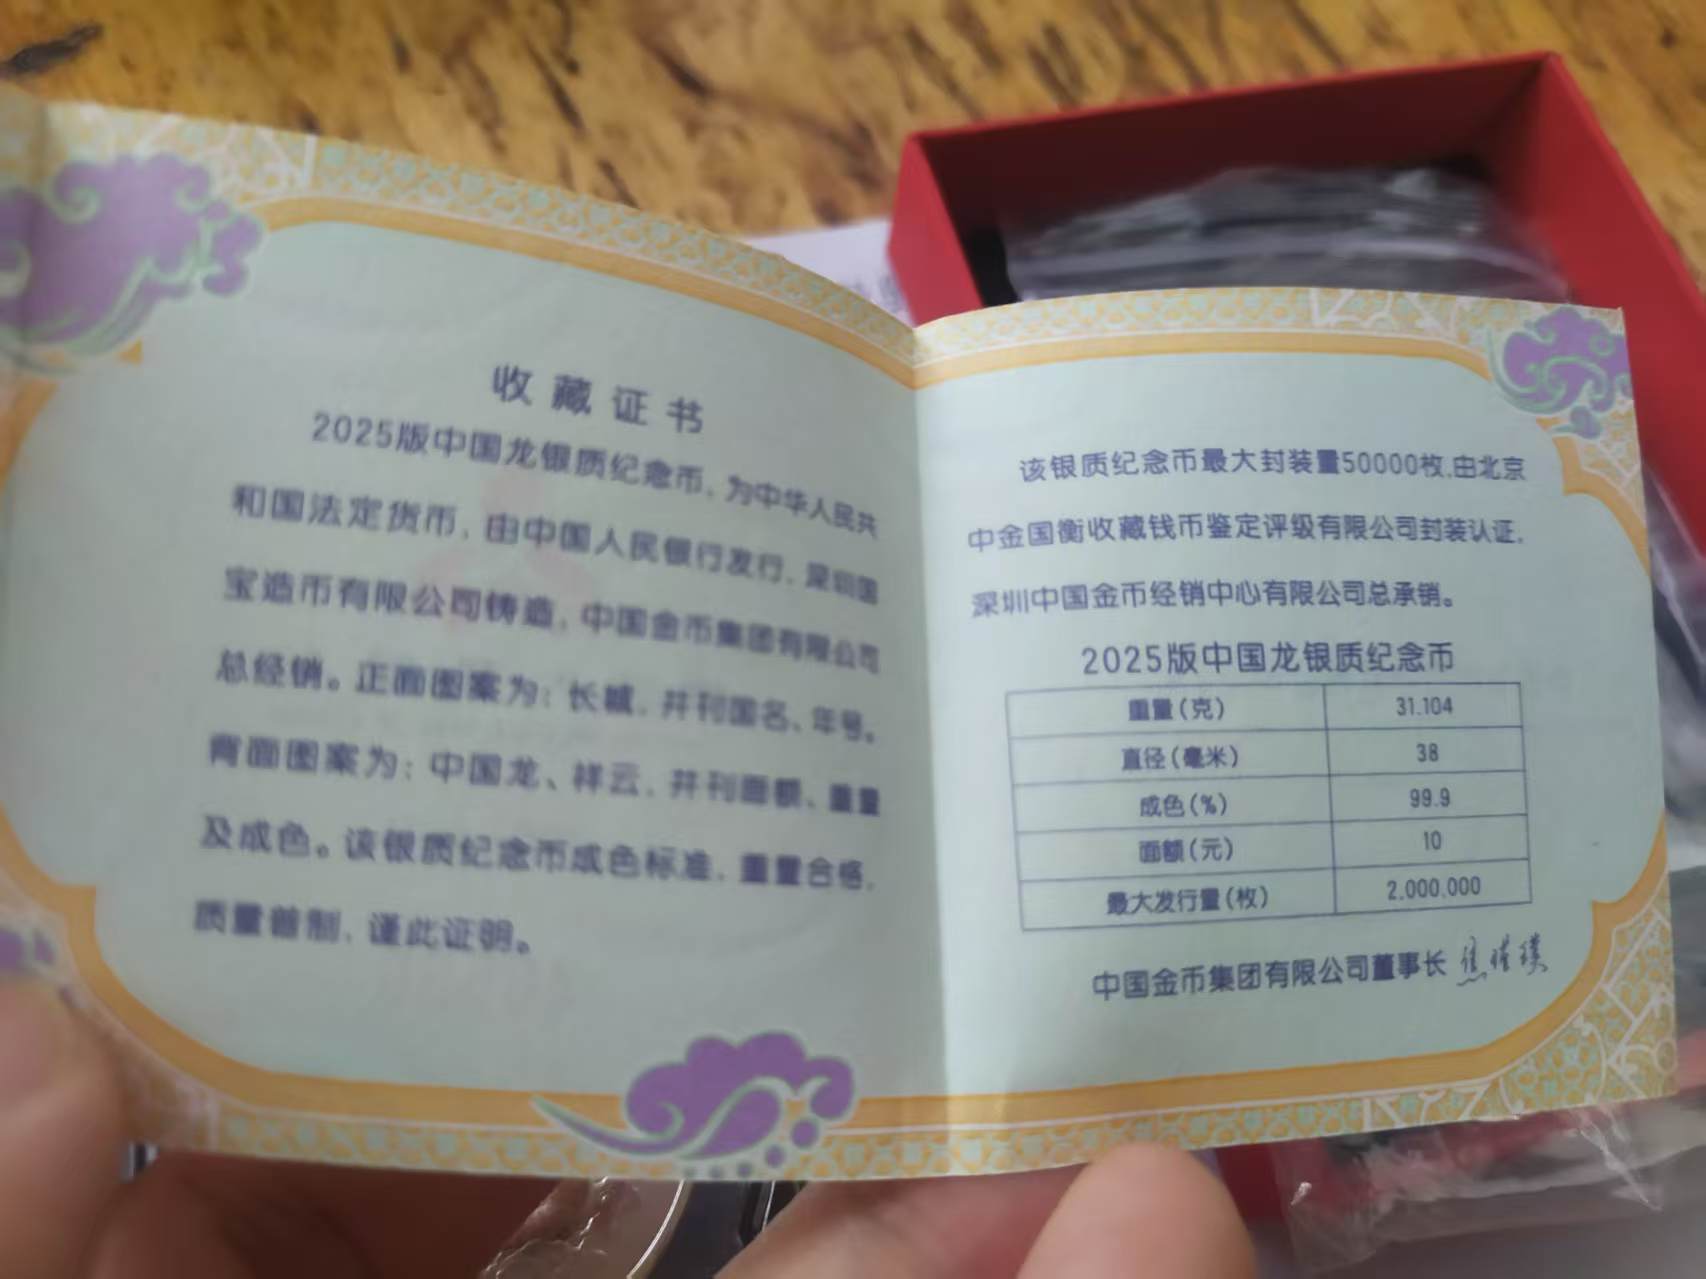 收藏证书
2025版中国龙银质纪念币，为中华人民共
和国法定货币，由中国人民银行发行，深圳国
宝造币有限公司铸造，中国金币集团有限公司
总经销。正面图案为：长城，并刊国名、年号。
背面图案为：中国龙、祥云，并刊面额、重量
及成色。该银质纪念币成色标准，重量合格，
质量普制，谨此证明。
该银质纪念币最大封装量50000枚,由北京
中金国衡收藏钱币鉴定评级有限公司封装认证,
深圳中国金币经销中心有限公司总承销。
2025版中国龙银质纪念币
重量(克) 31.104
直径(毫米) 38
成色(%) 99.9
面额(元) 10
最大发行量(枚) 2,000,000
中国金币集团有限公司董事长